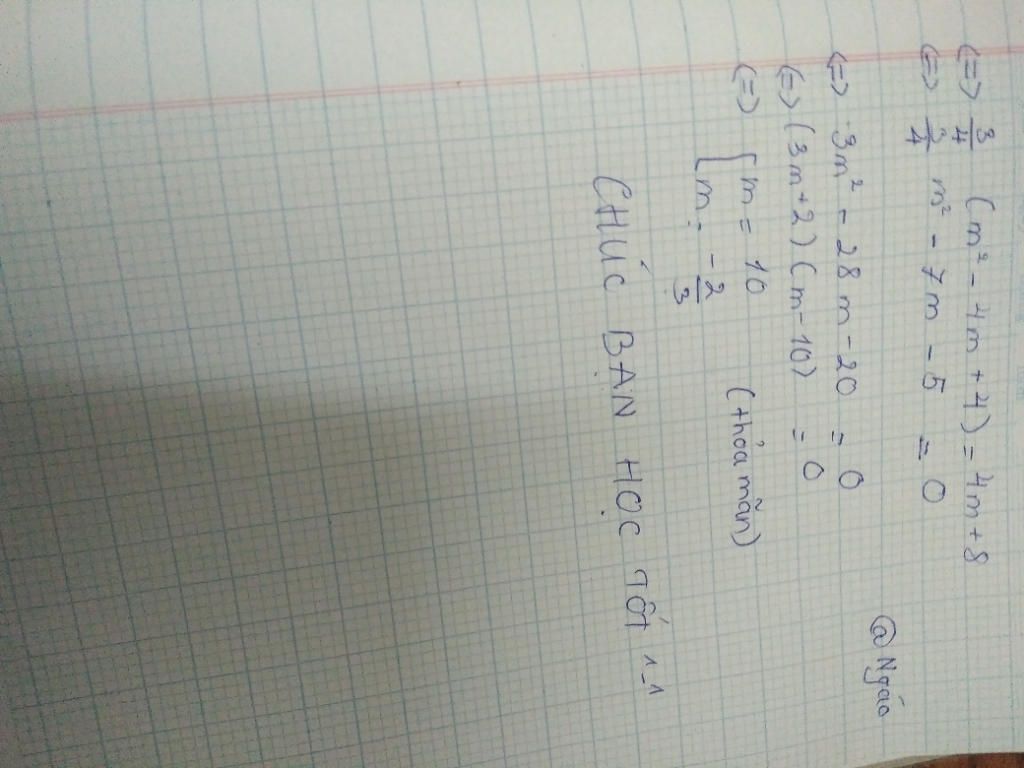 (=) 3/4 (m² - 4m + 4) = 4m + 8
(=) 3/4 m² - 7m - 5 = 0
@Ngáo
(=) 3m² - 28m - 20 = 0
(=) (3m + 2) (m - 10) = 0
(=) [ m = 10 (thỏa mãn)
m = -2/3
CHÚC BẠN HỌC TỐT ^_^